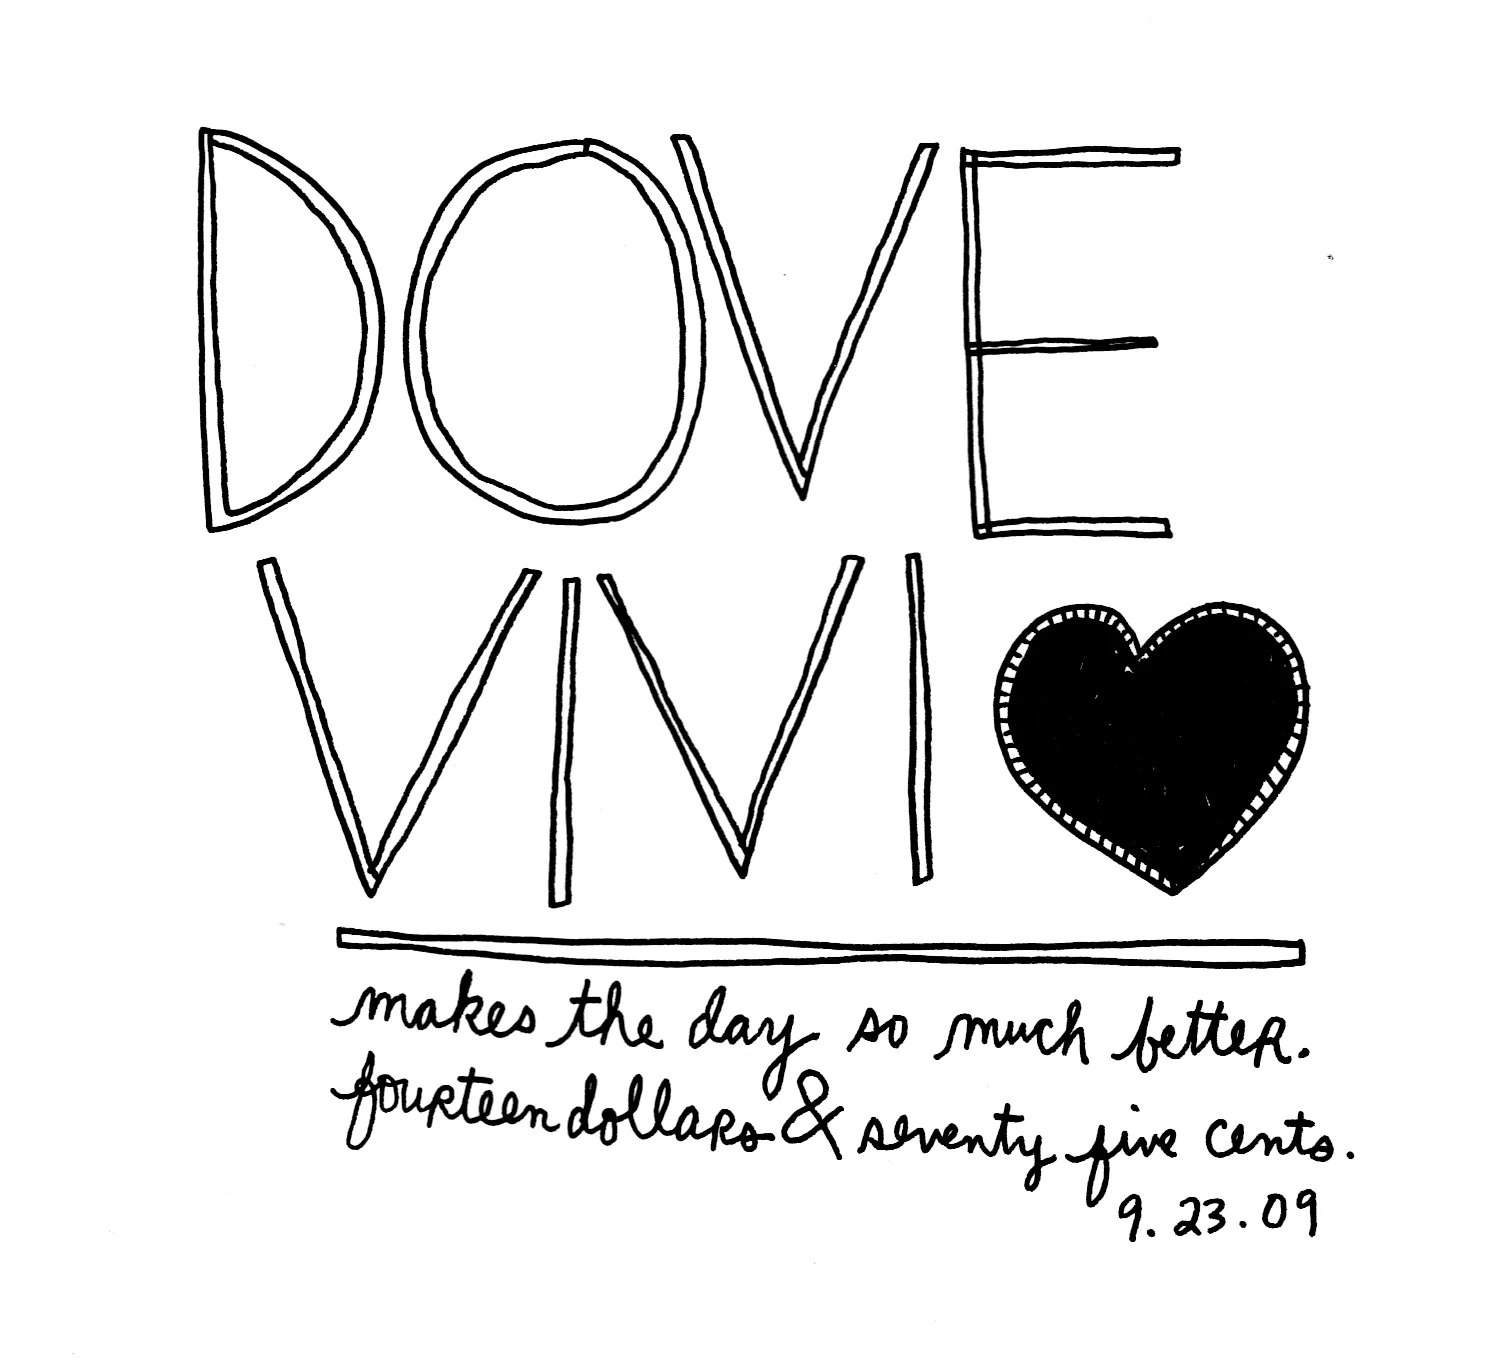 DOVE
VIVI
makes the day so much better.
fourteen dollars & seventy five cents.
9.23.09